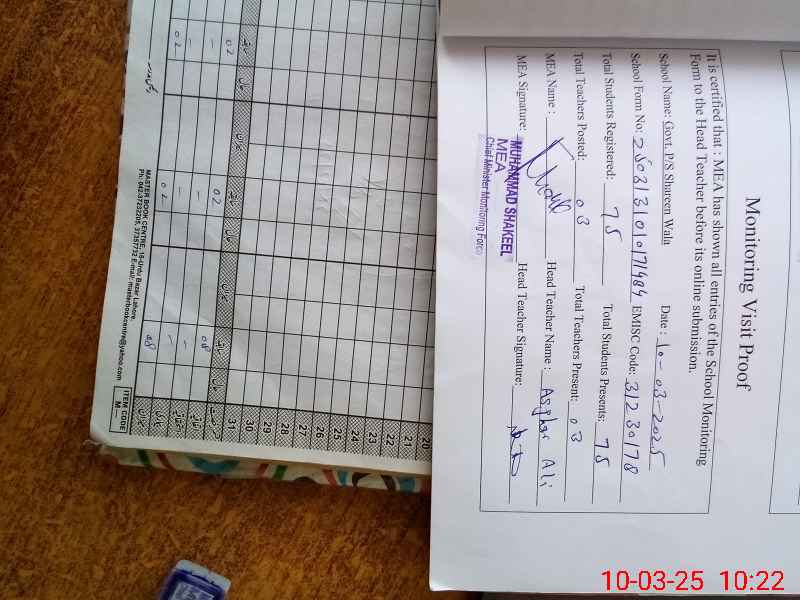 Monitoring Visit Proof
It is certified that : MEA has shown all entries of the School Monitoring
Form to the Head Teacher before its online submission.
School Name: Govt. P/S Shareen Wala Date : 10-03-2025
School Form No: EMISC Code: 31230178
Total Students Registered: 75 Total Students Presents: 75
Total Teachers Posted: 03 Total Teachers Present: 03
MEA Name : Head Teacher Name : Asghar Ali
MEA Signature: Head Teacher Signature:
MUHAMMAD SHAKEEL
MEA
Chief Minister Monitoring Force
20
21
22
23
24
25
26
27
28
29
30
31
حال سابقہ میزان حال سابقہ میزان حال سابقہ
02 02 08
02 02 08
MASTER BOOK CENTRE, 16-Urdu Bazar Lahore.
Ph: 042-37232205, 37357732 E-mail: masterbookcentre@yahoo.com
ITEM CODE
M—
10-03-25 10:22